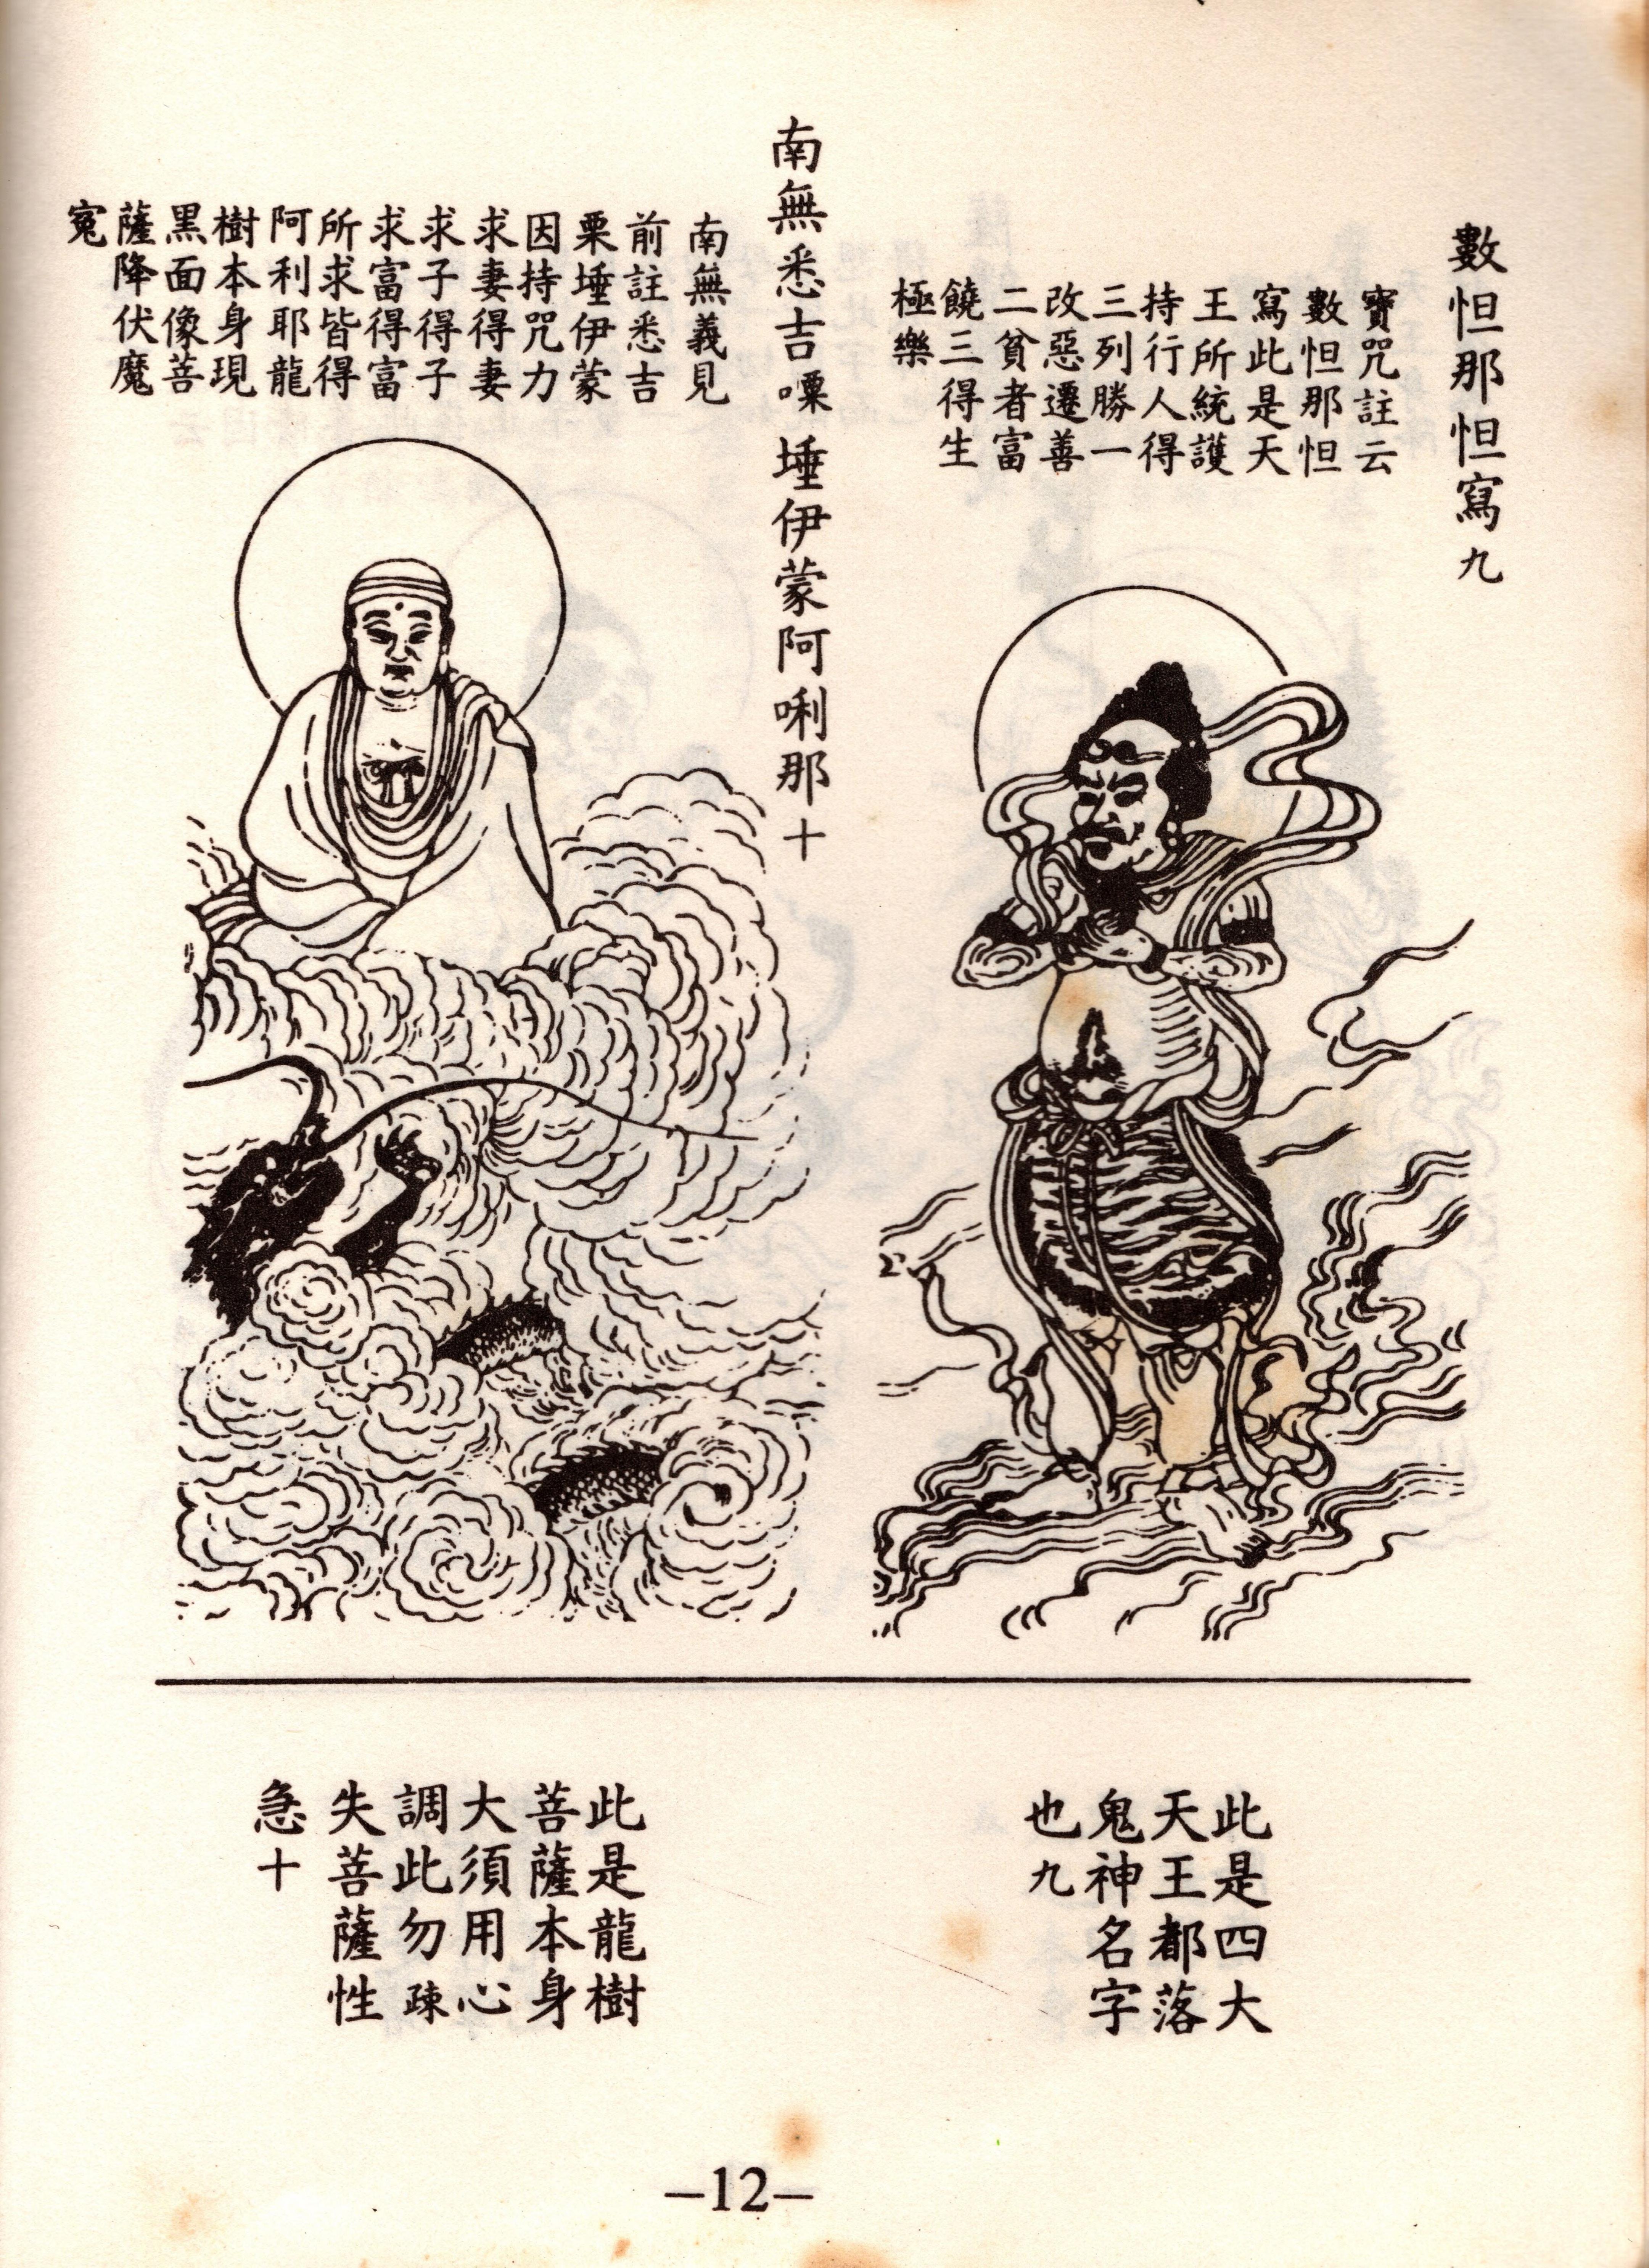 數怛那怛寫九
寶咒註云
數怛那怛
寫此是天
王所統護
持行人得
三列勝一
改惡遷善
二貧者富
饒三得生
極樂
南無悉吉㗚埵伊蒙阿唎那十
南無義見
前註悉吉
栗埵伊蒙
因持咒力
求妻得妻
求子得子
求富得富
所求皆得
阿利耶龍
樹本身現
黑面像菩
薩降伏魔
寃
此是四大
天王都落
鬼神名字
也九
此是龍樹
菩薩本身
大須用心
調此勿疎
失菩薩性
急十
—12—